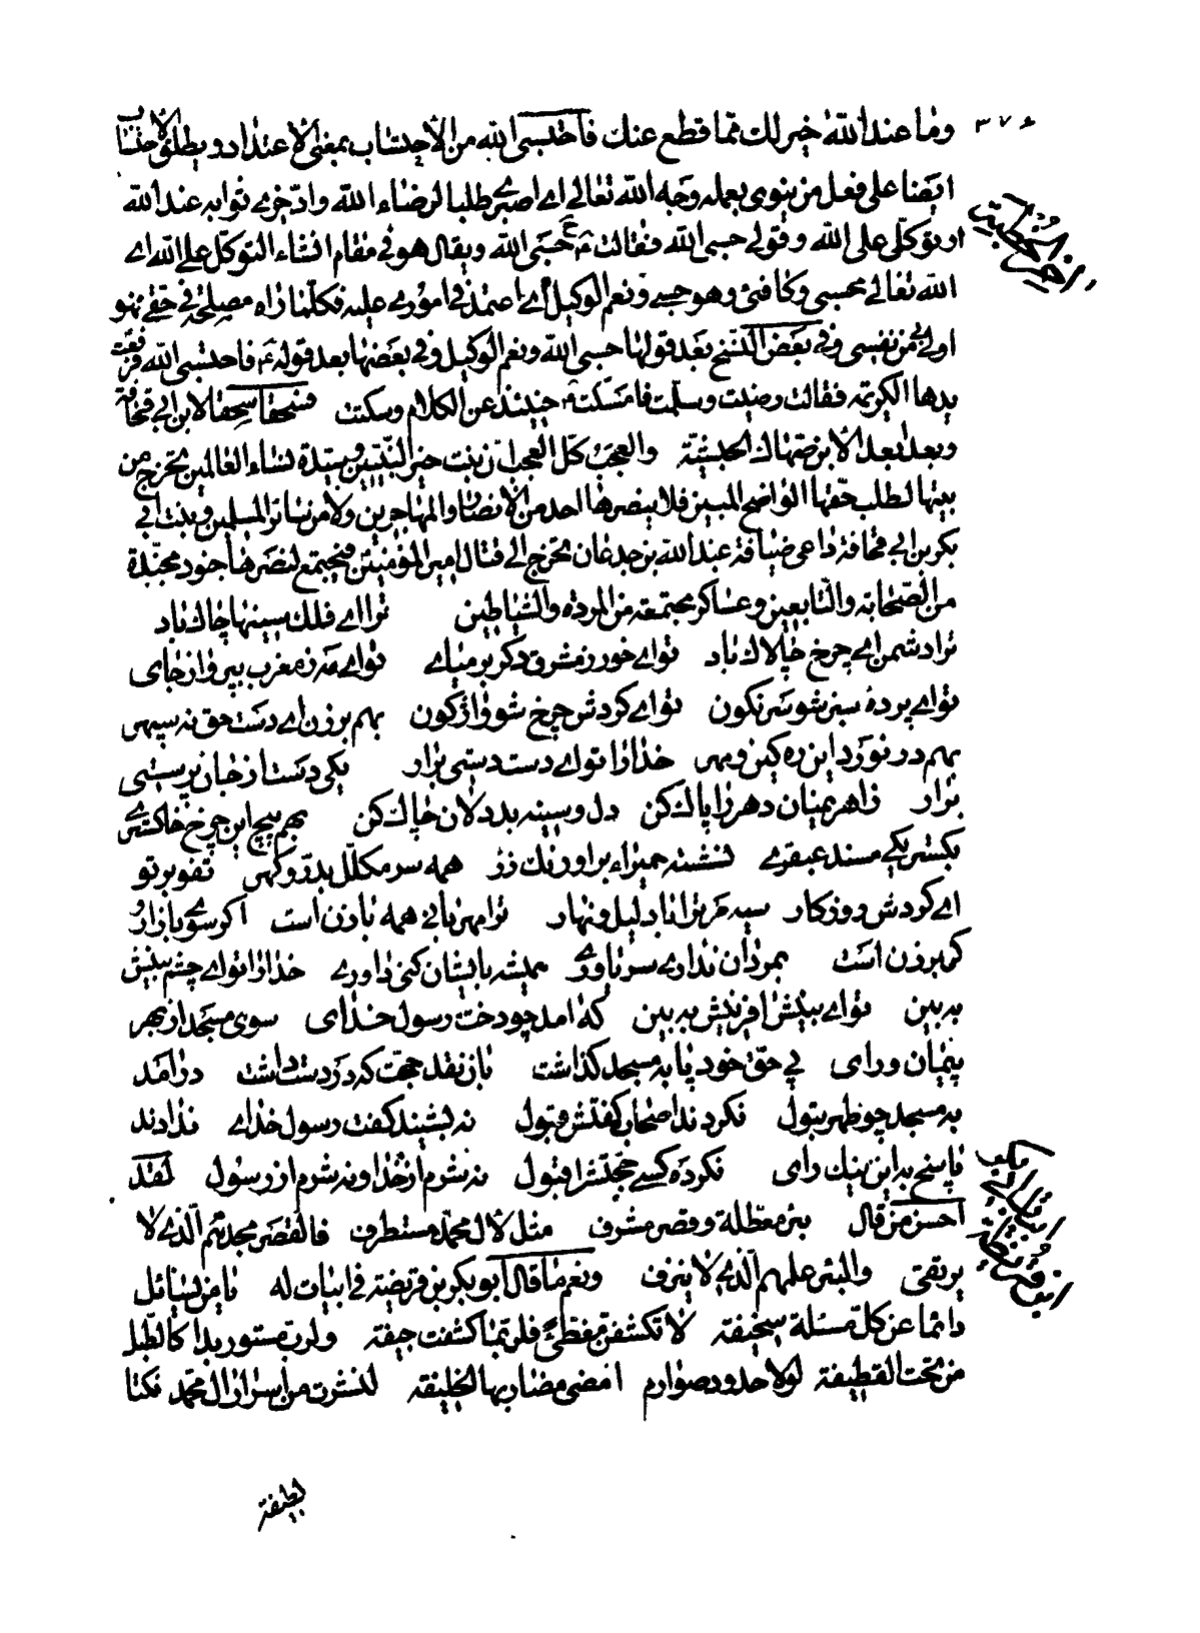 ٣٧٤
وما عند الله خير لك مما قطع عنك فاحتسبي الله من الاحتساب بمعنى الاعتداد ويطلق الاحتساب
ايضا على فعل من ينوي بعمله وجه الله تعالى اي اصبري طلبا لرضاء الله وادخري ثوابه عند الله
او توكلي على الله وقولي حسبي الله فقالت ع حسبي الله ويقال هو في مقام انشاء التوكل على الله اي
الله تعالى محسبي وكافئ وهو حسبي ونعم الوكيل اي اعتمد في اموري عليه فكلما راه مصلحة في حقي فهو
اولى من نفسي وفي بعض النسخ بعد قولها حسبي الله ونعم الوكيل وفي بعضها بعد قوله ع فاحتسبي الله فرفعت
يدها الكريمة فقالت رضيت وسلمت فامسكت ع حينئذ عن الكلام وسكتت فسحقا سحقا لابن ابي قحافة
وبعدا بعدا لابن صهاك الحبشية والعجب كل العجب ان بنت خير النبيين وسيدة نساء العالمين تخرج من
بيتها لطلب حقها الواضح المبين فلا ينصرها احد من الانصار والمهاجرين ولا من سائر المسلمين وبنت ابي
بكر بن ابي قحافة داعي ضيافة عبد الله بن جدعان تخرج الى قتال امير المؤمنين فيجتمع لنصرها جنود مجندة
من الصحابة والتابعين وعساكر مجتمعة من المردة والشياطين ترا اي فلك سينها چاك باد
ترا دشمن اي چرخ چالاك باد تو اي خور ز مشرق دكر بر مياي تو اي مه ز مغرب بپرواز جاي
تو اي پرده سبز شو سرنكون تو اي كردش چرخ شو واژكون بهم بر زن اي دست حق نه سپهر
بهم در نورد اين ره كين ومهر خدا را تو اي دست دستي برار يكي دست از جان پرستي
برار ز اهريمنان دهر را پاك كن دل وسينه بددلان چاك كن بهم پيچ اين چرخ خاكستري
بكستر يكي مسند عبقري نشسته حميراء بر اورنك زر همه سر مكلل بدر وكهر تفو بر تو
اي كردش روزكار سيه مر ترا باد ليل ونهار ترا مهرباني همه با زن است اكر سوي بازار و
كر برزن است بمردان نداري سر ياوري هميشه بايشان كني داوري خدا را تو اي چشم بينش
به بين تو اي بينش افرينش به بين كه امد چو دخت رسول خداى سوى مسجد از بهر
پيمان وراى پي حق خود پا به مسجد كذاشت بان نقد حجت كه در دست داشت درامد
به مسجد چو طهر بتول نكردند اصحاب كفتش قبول نه بشنيد كفت رسول خداي ندادند
پاسخ به اين نيك راى نكرده كسي حجتش را قبول نه شرم از خدا ونه شرم از رسول لقد
احسن من قال بئر معطلة وقصر مشرف مثل لال محمد مستطرف فالقصر مجدهم الذي لا
يرتقى والبئر علمهم الذي لا ينزف ونعم ما قال ابو بكر بن قريضة في ابيات له يا من يسائل
دائما عن كل مسئلة سخيفة لا تكشفن مغطئ فلربما كشفت جيفة ولرب مستور بدا كالطبل
من تحت القطيفة لولا حدود صوارم امضى مضاربها الخليفة لنشرت من اسرار ال محمد نكتا
لطيفة